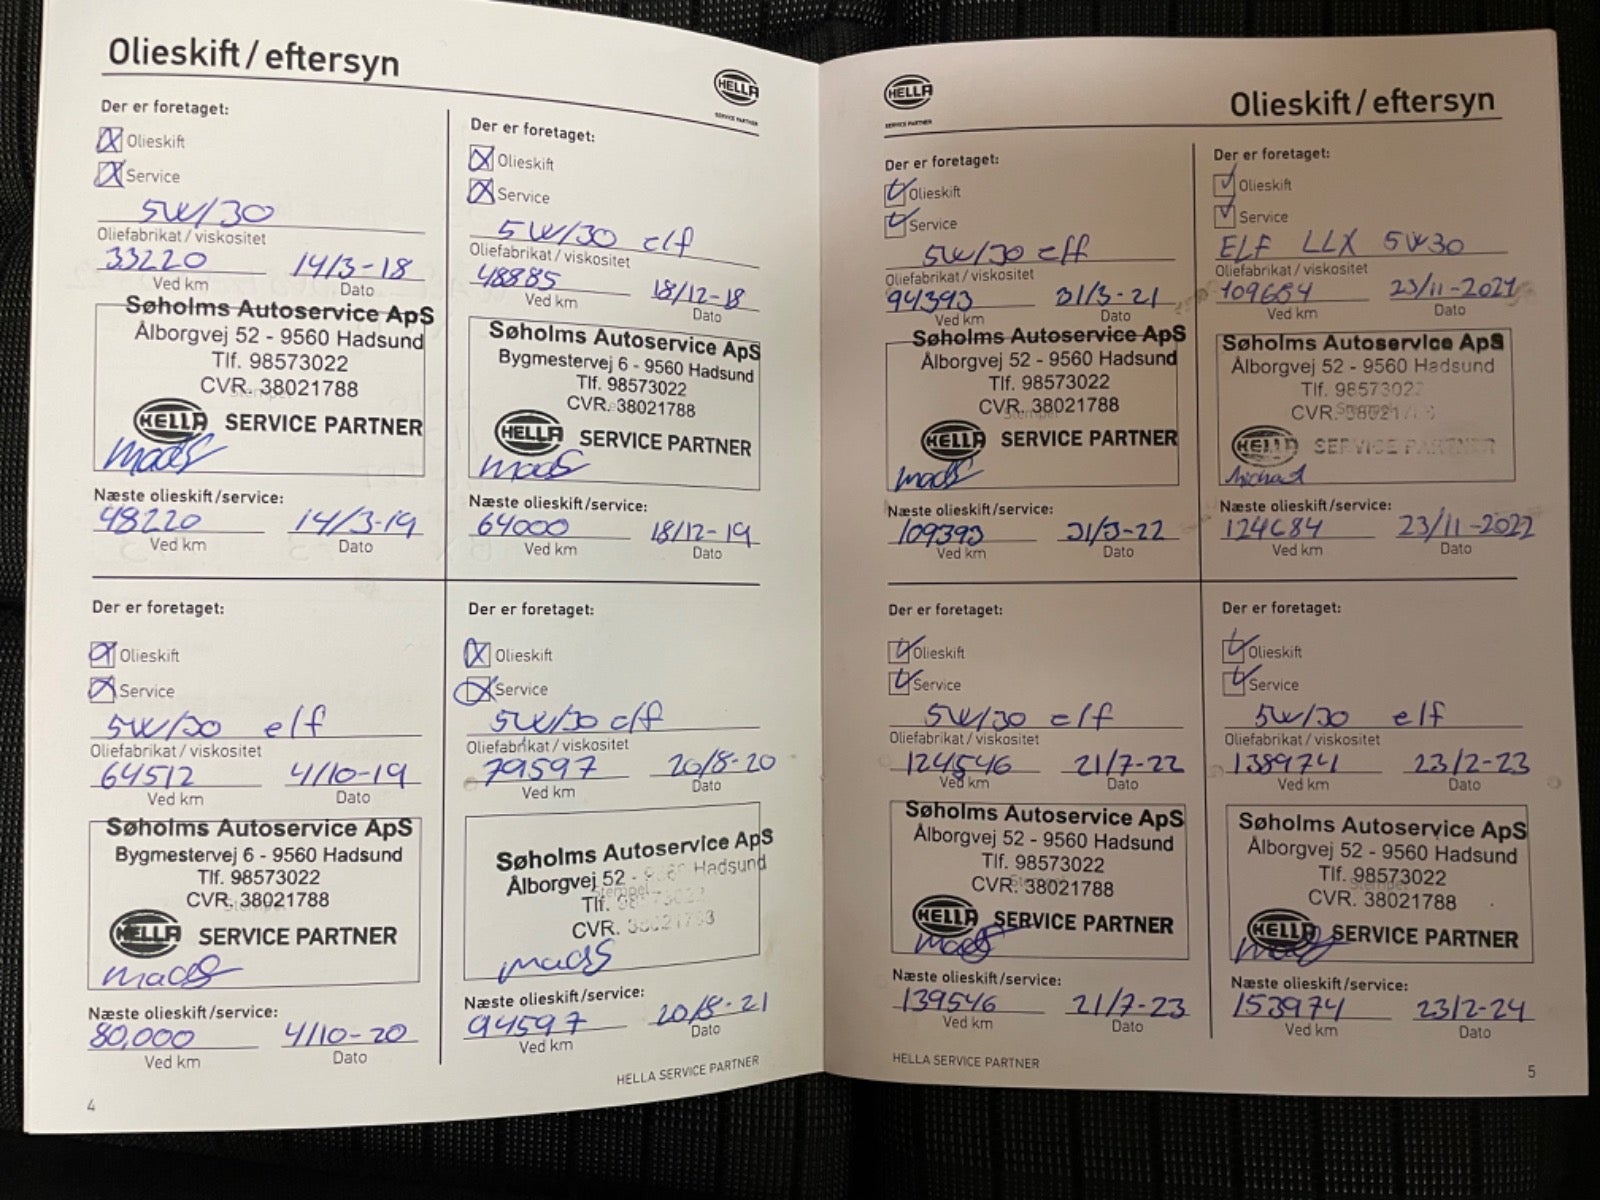 Olieskift / eftersyn
HELLA
SERVICE PARTNER
Der er foretaget:
Olieskift
Service
5W/30
Oliefabrikat / viskositet
33220 14/3-18
Ved km Dato
Søholms Autoservice ApS
Ålborgvej 52 - 9560 Hadsund
Tlf. 98573022
CVR. 38021788
HELLA SERVICE PARTNER
mads
Næste olieskift/service:
48220 14/3-19
Ved km Dato
Der er foretaget:
Olieskift
Service
5W/30 elf
Oliefabrikat / viskositet
48885 18/12-18
Ved km Dato
Søholms Autoservice ApS
Bygmestervej 6 - 9560 Hadsund
Tlf. 98573022
CVR. 38021788
HELLA SERVICE PARTNER
mads
Næste olieskift/service:
64000 18/12-19
Ved km Dato
Der er foretaget:
Olieskift
Service
5W/30 elf
Oliefabrikat / viskositet
64512 4/10-19
Ved km Dato
Søholms Autoservice ApS
Bygmestervej 6 - 9560 Hadsund
Tlf. 98573022
CVR. 38021788
HELLA SERVICE PARTNER
mads
Næste olieskift/service:
80,000 4/10-20
Ved km Dato
Der er foretaget:
Olieskift
Service
5W/30 elf
Oliefabrikat / viskositet
79597 20/8-20
Ved km Dato
Søholms Autoservice ApS
Ålborgvej 52 - 9560 Hadsund
Stempel
Tlf. 98573022
CVR. 38021788
mads
Næste olieskift/service:
94597 20/8-21
Ved km Dato
HELLA SERVICE PARTNER
4
HELLA
SERVICE PARTNER
Olieskift / eftersyn
Der er foretaget:
Olieskift
Service
5W/30 elf
Oliefabrikat / viskositet
94393 31/3-21
Ved km Dato
Søholms Autoservice ApS
Ålborgvej 52 - 9560 Hadsund
Tlf. 98573022
CVR. 38021788
Stempel
HELLA SERVICE PARTNER
mads
Næste olieskift/service:
109393 31/3-22
Ved km Dato
Der er foretaget:
Olieskift
Service
ELF LLX 5W30
Oliefabrikat / viskositet
109684 23/11-2021
Ved km Dato
Søholms Autoservice ApS
Ålborgvej 52 - 9560 Hadsund
Tlf. 98573022
CVR. 38021788
HELLA SERVICE PARTNER
Michael
Næste olieskift/service:
124684 23/11-2022
Ved km Dato
Der er foretaget:
Olieskift
Service
5W/30 elf
Oliefabrikat / viskositet
124546 21/7-22
Ved km Dato
Søholms Autoservice ApS
Ålborgvej 52 - 9560 Hadsund
Tlf. 98573022
CVR. 38021788
HELLA SERVICE PARTNER
mads
Næste olieskift/service:
139546 21/7-23
Ved km Dato
Der er foretaget:
Olieskift
Service
5W/30 elf
Oliefabrikat / viskositet
138974 23/2-23
Ved km Dato
Søholms Autoservice ApS
Ålborgvej 52 - 9560 Hadsund
Tlf. 98573022
CVR. 38021788
HELLA SERVICE PARTNER
mads
Næste olieskift/service:
153974 23/2-24
Ved km Dato
HELLA SERVICE PARTNER
5